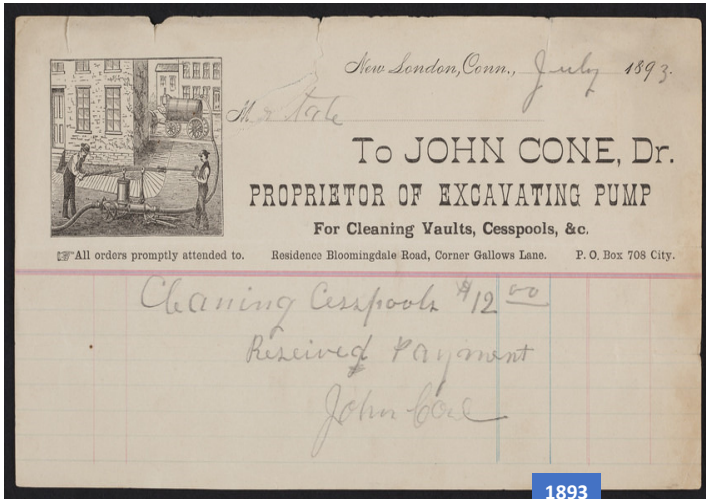 New London, Conn., July 1893.
M
To JOHN CONE, Dr.
PROPRIETOR OF EXCAVATING PUMP
For Cleaning Vaults, Cesspools, &c.
☞All orders promptly attended to. Residence Bloomingdale Road, Corner Gallows Lane. P. O. Box 708 City.
Cleaning Cesspools $12 00
Received Payment
John Cone
1893